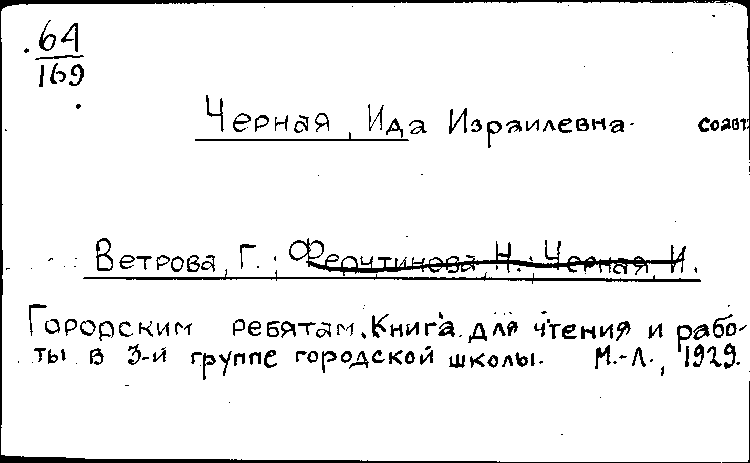 64
169
Черная, Ида Израилевна. соавт
Ветрова, Г.; Ферчтинова, Н.; Черная, И.
Городским ребятам. Книга для чтения и рабо-
ты в 3-й группе городской школы. М.-Л., 1929.